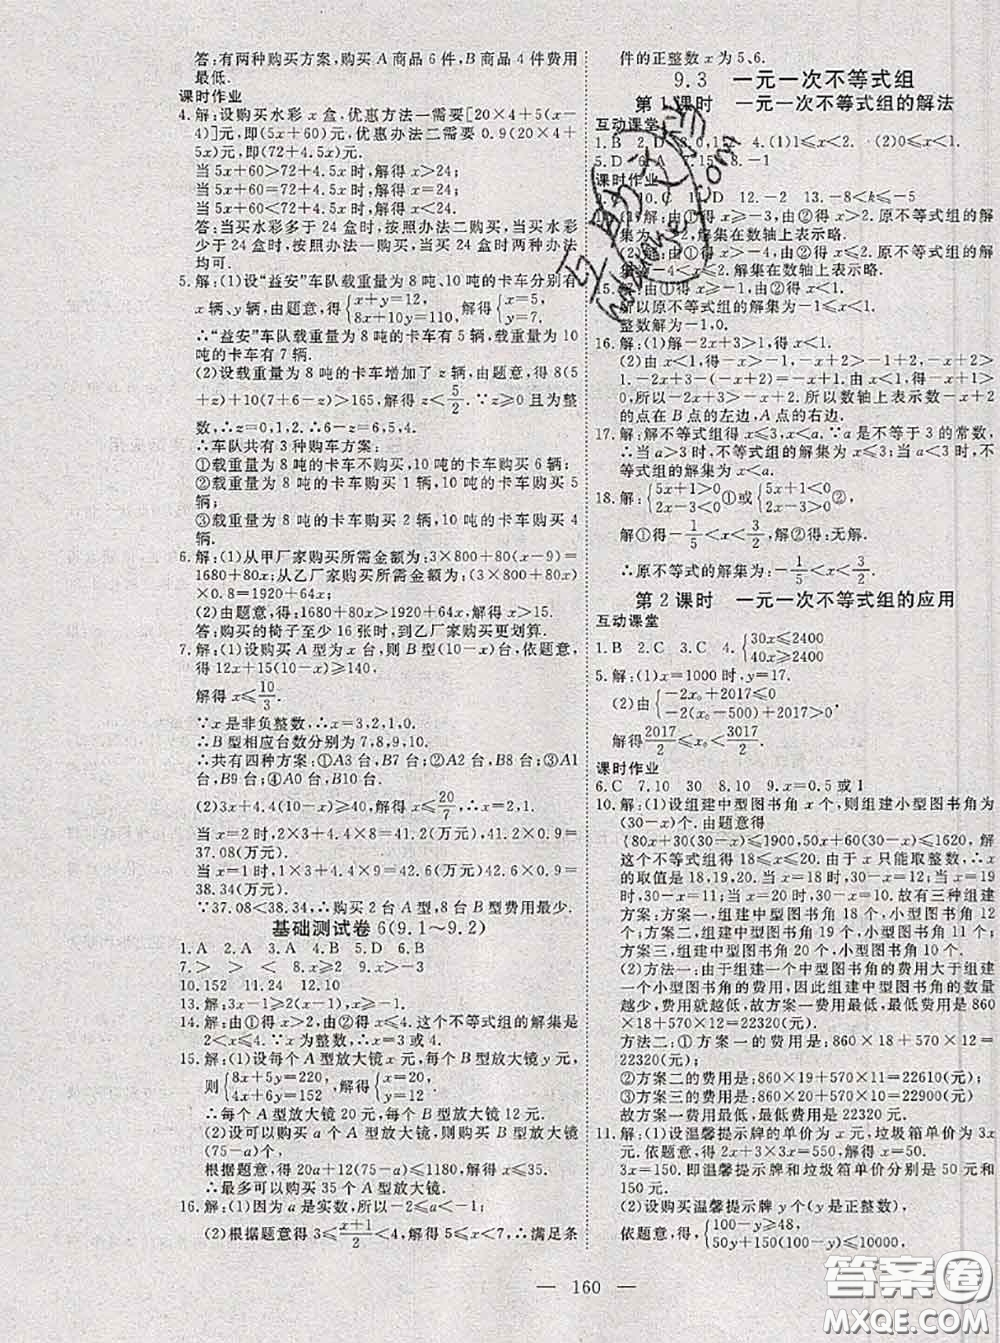 答:有两种购买方案,购买 A 商品 6 件,B 商品 4 件费用
最低.
课时作业
4. 解:设购买水彩 x 盒,优惠方法一需要[20×4+5(x-
4)]元,即(5x+60)元,优惠办法二需要 0.9(20×4+
5x)元,即(72+4.5x)元.
当 5x+60>72+4.5x 时,解得 x>24;
当 5x+60=72+4.5x 时,解得 x=24;
当 5x+60<72+4.5x 时,解得 x<24.
答:当买水彩多于 24 盒时,按照办法二购买,当买水彩
少于 24 盒时,按照办法一购买,当买 24 盒时,两种办法
均可.
5. 解:(1)设“益安”车队载重量为 8 吨、10 吨的卡车分别有
x 辆、y 辆,由题意,得{x+y=12, 8x+10y=110, 解得{x=5, y=7.
∴“益安”车队载重量为 8 吨的卡车有 5 辆,载重量为 10
吨的卡车有 7 辆.
(2)设载重量为 8 吨的卡车增加了 z 辆,由题意,得 8(5
+z)+10(7+6-z)>165,解得 z<5/2. ∵z≥0 且为整
数,∴z=0,1,2. ∴6-z=6,5,4.
∴车队共有 3 种购车方案:
①载重量为 8 吨的卡车不购买,10 吨的卡车购买 6 辆;
②载重量为 8 吨的卡车购买 1 辆,10 吨的卡车购买 5
辆;
③载重量为 8 吨的卡车购买 2 辆,10 吨的卡车购买 4
辆.
6. 解:(1)从甲厂家购买所需金额为:3×800+80(x-9)=
1680+80x;从乙厂家购买所需金额为:(3×800+80x)
×0.8=1920+64x;
(2)由题意,得:1680+80x>1920+64x,解得 x>15.
答:购买的椅子至少 16 张时,到乙厂家购买更划算.
7. 解:(1)设购买 A 型为 x 台,则 B 型(10-x)台,依题意,
得 12x+15(10-x)≥140,
解得 x≤10/3.
∵x 是非负整数,∴x=3,2,1,0.
∴B 型相应台数分别为 7,8,9,10.
∴共有四种方案:①A3 台,B7 台;②A2 台,B8 台;③A1
台,B9 台;④A0 台,B10 台.
(2)3x+4.4(10-x)≥40,解得 x≤20/7,∴x=2,1.
当 x=2 时,2×3+4.4×8=41.2(万元),41.2×0.9=
37.08(万元).
当 x=1 时,1×3+4.4×9=42.6(万元)42.6×0.9=
38.34(万元).
∵37.08<38.34,∴购买 2 台 A 型,B 型费用最少.
基础测试卷 6(9.1~9.2)
1. A 2. A 3. A 4. D 5. D 6. B
7. > > < > 8. x≥2 9. x>-3
10. 152 11. 24 12. 10
13. 解:3x-1≥2(x-1),3x-x≥-2+1,x≥-1.
14. 解:由①得 x>2,由②得 x≤4. 这个不等式组的解集是
2<x≤4. ∵x 为整数,∴x=3 或 4.
15. 解:(1)设每个 A 型放大镜 x 元,每个 B 型放大镜 y 元,
则{8x+5y=220, 4x+6y=152, 解得{x=20, y=12.
∴每个 A 型放大镜 20 元,每个 B 型放大镜 12 元.
(2)设可以购买 a 个 A 型放大镜,则购买 B 型放大镜
(75-a)个,
根据题意,得 20a+12(75-a)≤1180,解得 a≤35,
∴最多可以购买 35 个 A 型放大镜.
16. 解:(1)因为 a 是实数,所以-2≤a<-1.
(2)根据题意得 3≤(x+1)/2<4,解得 5≤x<7,∴满足条
件的正整数 x 为 5、6.
9.3 一元一次不等式组
第 1 课时 一元一次不等式组的解法
互动课堂
1. B 2. D 0,1 4. (1)1≤x<2. (2)0≤x<1.
5. D 6. A 15 8. -1
课时作业
10. C D 12. -2 13. -8<k≤-5
解:由①得 x≥-3,由②得 x>2. 原不等式组的解
集为 x>2,解集在数轴上表示略.
x≤2,由②得 x>-4,原不等式组
-4<x≤2. 解集在数轴上表示略.
15. 解:由①得 x≥-1,由②得 x<1.
所以原不等式组的解集为-1≤x<1.
整数解为-1,0.
16. 解:(1)解-2x+3>1,得 x<1.
(2)由 x<1,得-x>-1. -x+2>-1+2,-x+2>
1. -2x+3-(-x+2)=-2x+3+x-2=-x+1>
0,所以-2x+3>-x+2. 所以数轴上表示数-x+2
的点在 B 点的左边,A 点的右边.
17. 解:解不等式组得 x≤3,x<a. ∵a 是不等于 3 的常数,
∴当 a>3 时,不等式组的解集为 x≤3;当 a<3 时,不
等式组的解集为 x<a.
18. 解:{5x+1>0 2x-3<0 ①或{5x+1<0 2x-3>0 ②,
解①得-1/5<x<3/2 解②得:无解.
∴原不等式的解集为:-1/5<x<3/2.
第 2 课时 一元一次不等式组的应用
互动课堂
1. B 2. C 3. C 4. {30x≤2400 40x≥2400
5. 解:(1)x=1000 时,y=17.
(2)由{-2x₀+2017≤0 -2(x₀-500)+2017>0,
解得2017/2≤x₀<3017/2.
课时作业
6. C 7. 10 30 8. 10 9. x=0.5 或 1
10. 解:(1)设组建中型图书角 x 个,则组建小型图书角为
(30-x)个. 由题意得
{80x+30(30-x)≤1900,50x+60(30-x)≤1620,解
这个不等式组得 18≤x≤20. 由于 x 只能取整数,∴x
的取值是 18,19,20. 当 x=18 时,30-x=12;当 x=
19 时,30-x=11;当 x=20,30-x=10. 故有三种组建
方案:方案一,组建中型图书角 18 个,小型图书角 12
个;方案二,组建中型图书角 19 个,小型图书角 11 个;
方案三,组建中型图书角 20 个,小型图书角 10 个.
(2)方法一:由于组建一个中型图书角的费用大于组建
一个小型图书角的费用,因此组建中型图书角的数量
越少,费用就越低,故方案一费用最低,最低费用是 860
×18+570×12=22320(元).
方法二:①方案一的费用是:860×18+570×12=
22320(元);
②方案二的费用是:860×19+570×11=22610(元);
③方案三的费用是:860×20+570×10=22900(元)
故方案一费用最低,最低费用是 22320 元.
11. 解:(1)设温馨提示牌的单价为 x 元,垃圾箱单价为 3x
元. 依题意得 2x+3×3x=550,解得 x=50.
3x=150. 即温馨提示牌和垃圾箱单价分别是 50 元和
150 元.
(2)设购买温馨提示牌 y 个(y 是正整数)
依题意,得{100-y≥48, 50y+150(100-y)≤10000,
— 160 —
答案圈
MXQE.COM